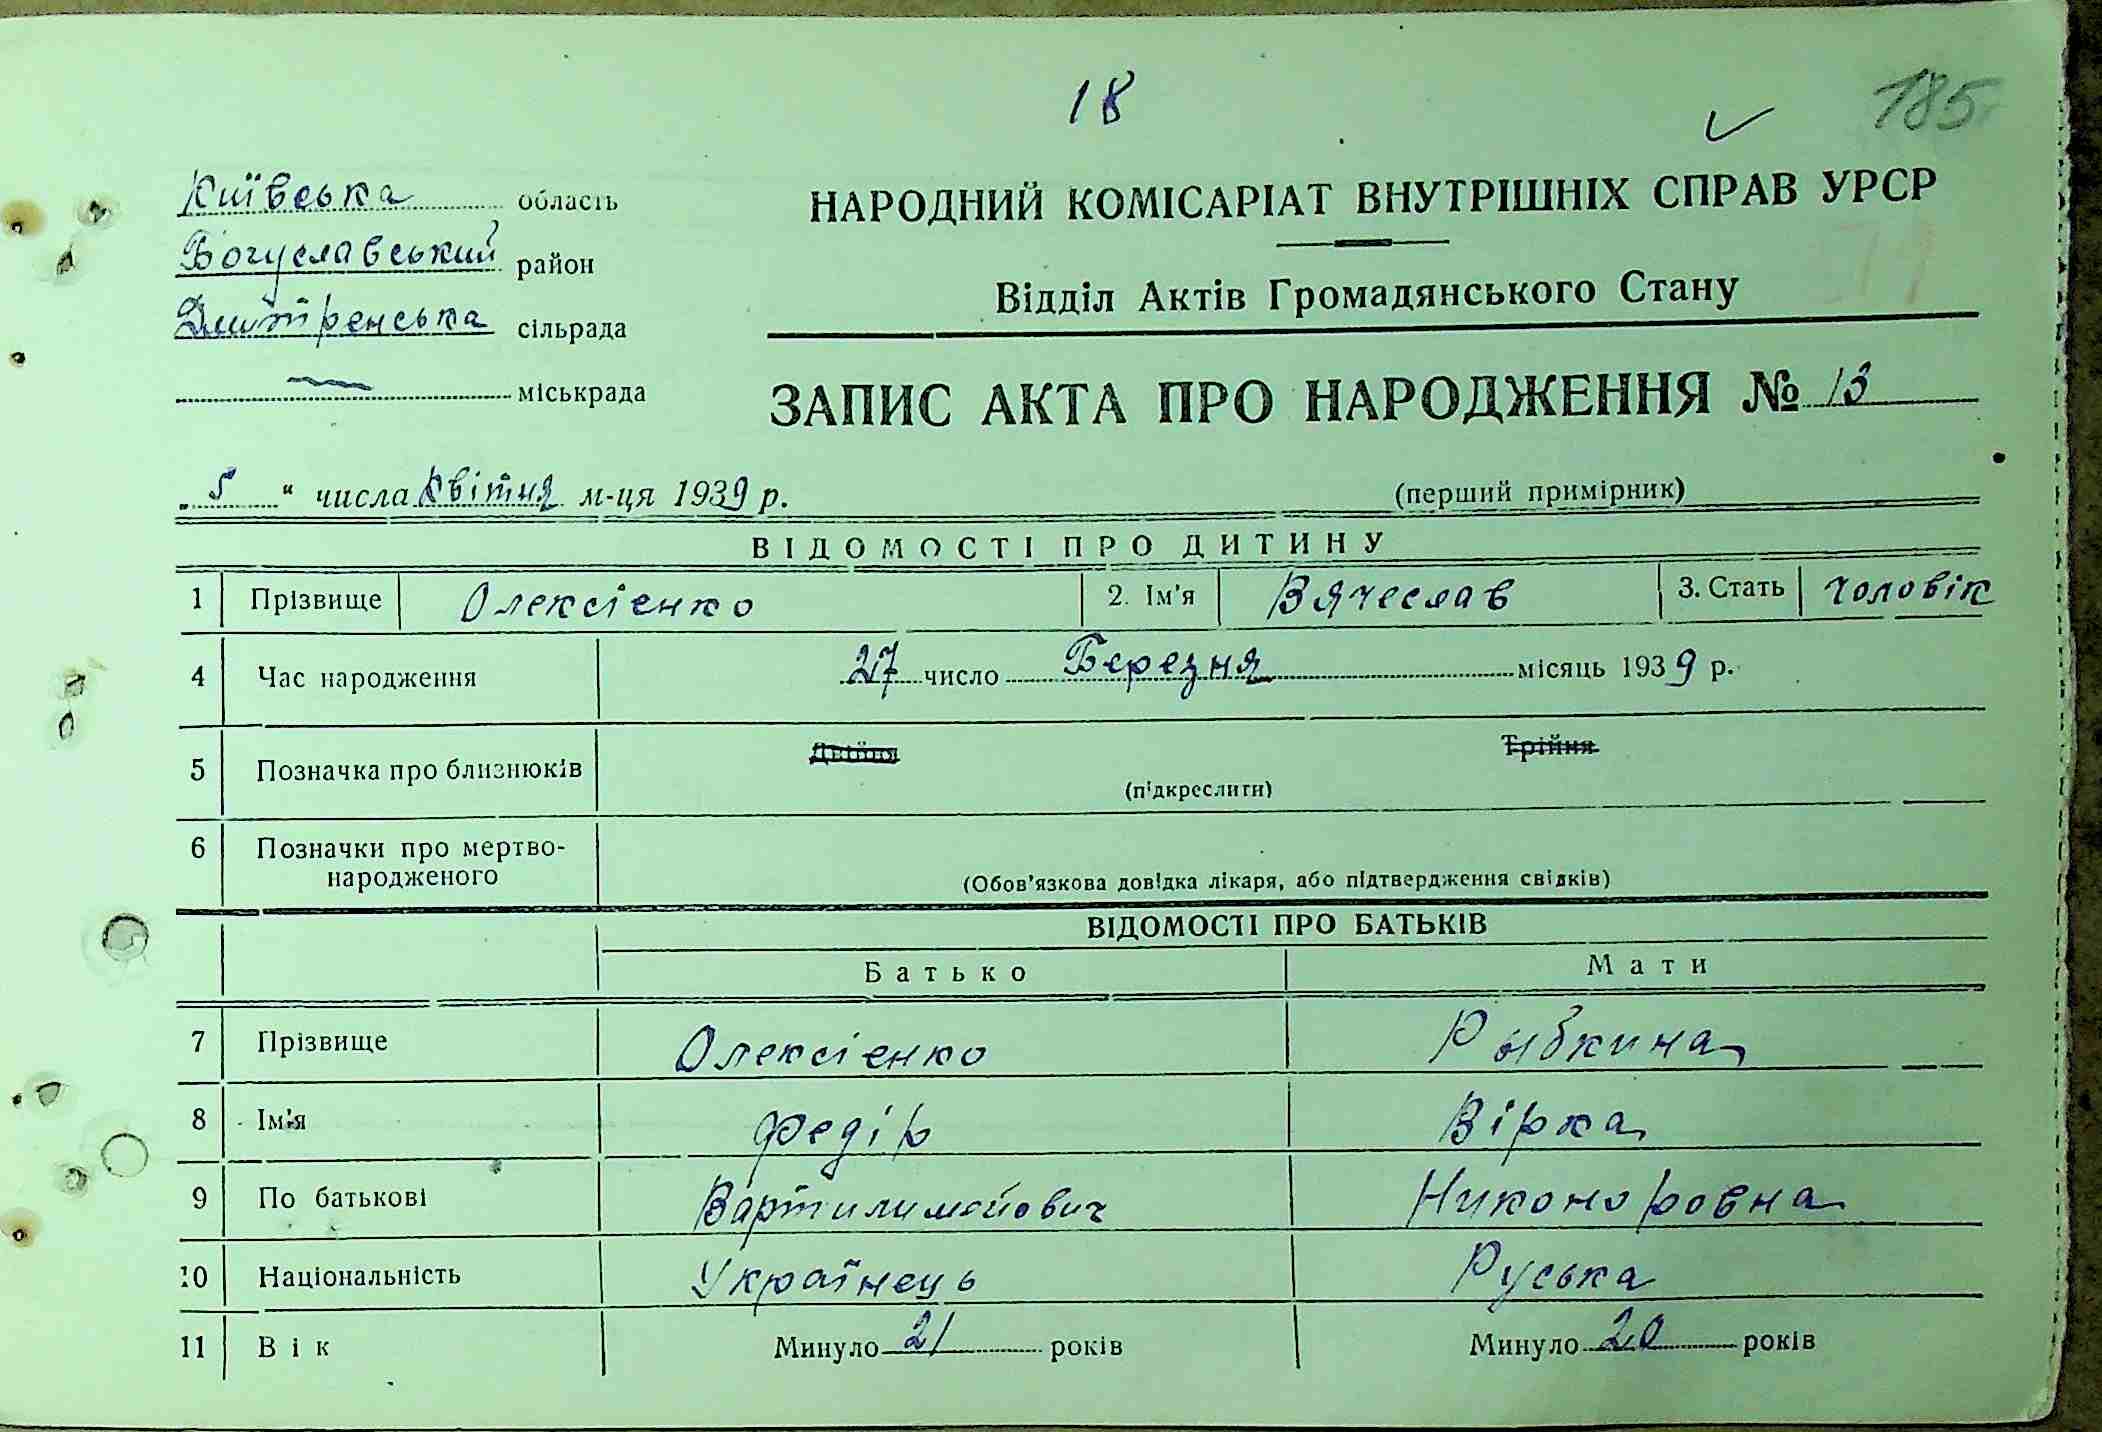 18
185
Київська область
Богуславський район
Дмитренська сільрада
міськрада
НАРОДНИЙ КОМІСАРІАТ ВНУТРІШНІХ СПРАВ УРСР
Відділ Актів Громадянського Стану
ЗАПИС АКТА ПРО НАРОДЖЕННЯ № 13
„5“ числа квітня м-ця 1939 р.
(перший примірник)
ВІДОМОСТІ ПРО ДИТИНУ
1 Прізвище Олексієнко 2. Ім'я Вячеслав 3. Стать чоловік
4 Час народження 27 число Березня місяць 1939 р.
5 Позначка про близнюків Двійня Трійня
(підкреслити)
6 Позначки про мертво-
народженого
(Обов'язкова довідка лікаря, або підтвердження свідків)
ВІДОМОСТІ ПРО БАТЬКІВ
Батько Мати
7 Прізвище Олексієнко Рыбкина
8 Ім'я Федір Вірка
9 По батькові Вартилимейович Никоноровна
10 Національність Українець Руська
11 Вік Минуло 21 років Минуло 20 років